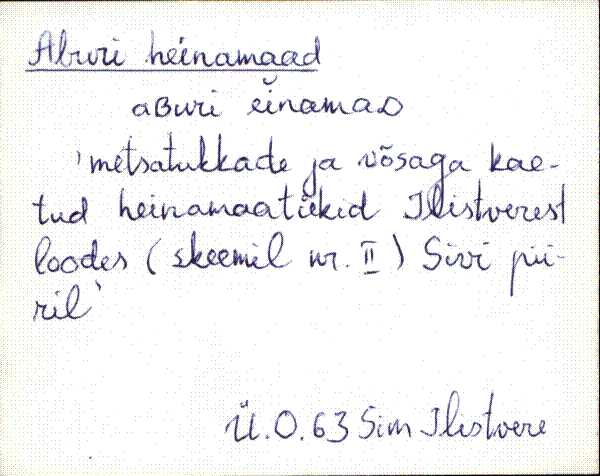 Aburi heinamaad
aBuri einamaD
'metsatukkade ja võsaga kae-
tud heinamaatükid Ilistverest
loodes (skeemil nr. II) Sivi pii-
ril'
Ü.O. 63 Sim Ilistvere